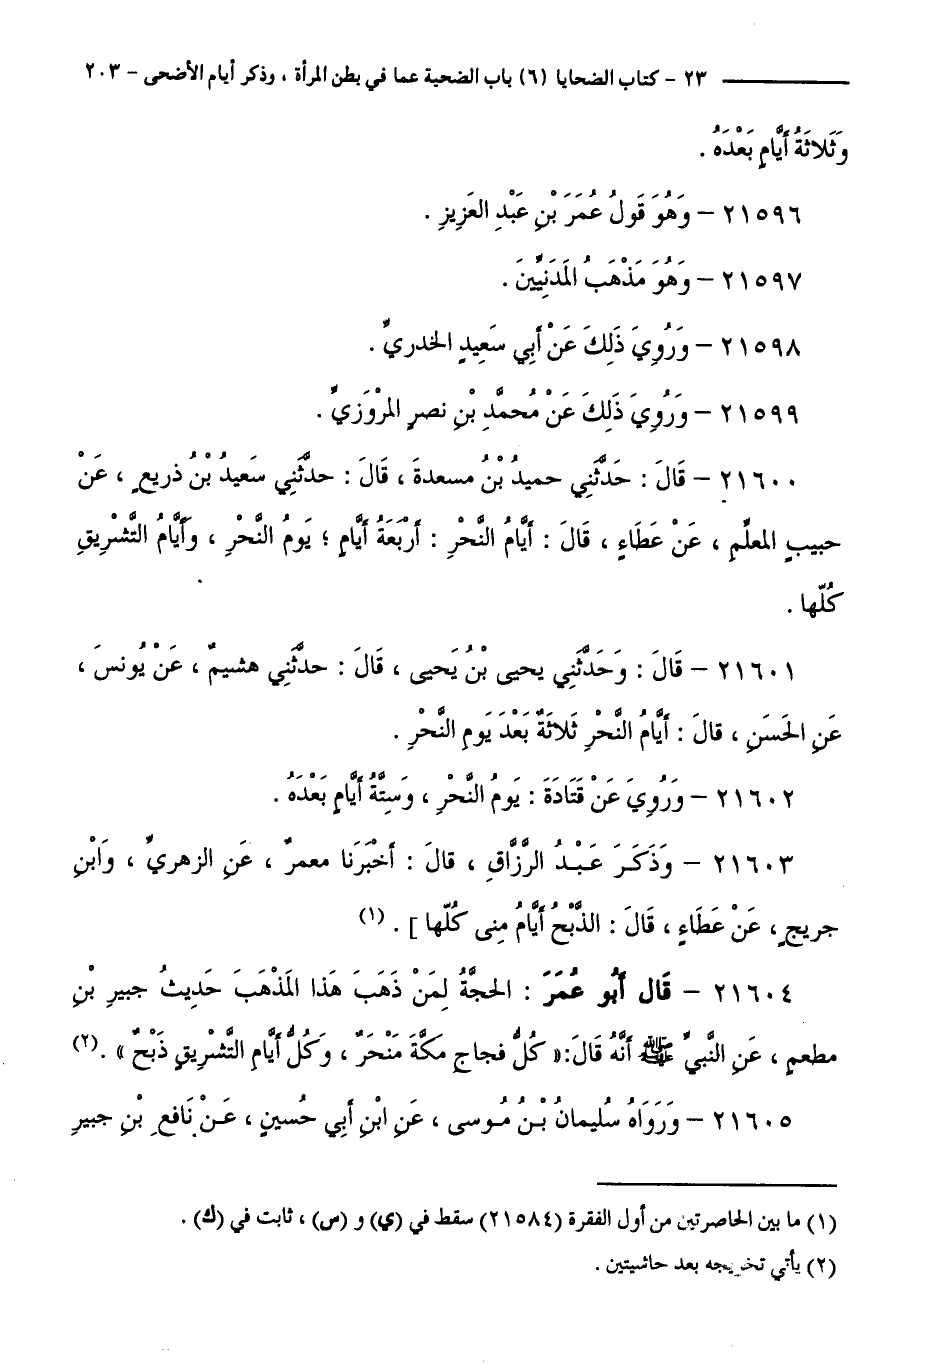 ٢٣ - كتاب الضحايا (٦) باب الضحية عما في بطن المرأة ، وذكر أيام الأضحى - ٢٠٣
وَثَلاثَةُ أَيَّامٍ بَعْدَهُ .
٢١٥٩٦ – وَهُوَ قَولُ عُمَرَ بْنِ عَبْدِ العَزِيزِ .
٢١٥٩٧ – وَهُوَ مَذْهَبُ المَدَنِيِّينَ .
٢١٥٩٨ – وَرُوِيَ ذَلِكَ عَنْ أَبِي سَعِيدٍ الخدريِّ .
٢١٥٩٩ – وَرُوِيَ ذَلِكَ عَنْ مُحَمَّدِ بْنِ نصرٍ المرْوَزيِّ .
٢١٦٠٠ – قَالَ : حَدَّثَنِي حميدُ بْنُ مسعدةَ ، قَالَ : حدَّثَنِي سَعِيدُ بْنُ ذريعٍ ، عَنْ
حبيبٍ المعلّمِ ، عَنْ عَطَاءٍ ، قَالَ : أَيَّامُ النَّحْرِ : أَرْبَعَةُ أَيَّامٍ ؛ يَومُ النَّحْرِ ، وَأَيَّامُ التَّشْرِيقِ
كُلّها .
٢١٦٠١ – قَالَ : وَحَدَّثَنِي يحيى بْنُ يَحيى ، قَالَ : حدَّثَنِي هشيمٌ ، عَنْ يُونسَ ،
عَنِ الحَسَنِ ، قالَ : أَيَّامُ النَّحْرِ ثَلاثَةٌ بَعْدَ يَومِ النَّحْرِ .
٢١٦٠٢ – وَرُوِيَ عَنْ قَتَادَةَ : يَومُ النَّحْرِ ، وَسِتَّةُ أَيَّامٍ بَعْدَهُ .
٢١٦٠٣ – وَذَكَرَ عَبْدُ الرَّزَّاقِ ، قالَ : أَخْبَرَنَا معمرٌ ، عَنِ الزهريِّ ، وَابْنِ
جريجٍ ، عَنْ عَطَاءٍ ، قَالَ : الذَّبْحُ أَيَّامُ مِنى كُلّها ] . (١)
٢١٦٠٤ – قَالَ أَبُو عُمَرَ : الحجَّةُ لِمَنْ ذَهَبَ هَذَا المَذْهَبَ حَدِيثُ جبيرِ بْنِ
مطعمٍ ، عَنِ النَّبِيِّ ﷺ أَنَّهُ قَالَ:« كُلُّ فجاج مكَّةَ مَنْحَرٌ ، وَكُلُّ أَيَّامِ التَّشْرِيقِ ذَبْحٌ » . (٢)
٢١٦٠٥ – وَرَوَاهُ سُليمانُ بْنُ مُوسى ، عَنِ ابْنِ أَبِي حُسينٍ ، عَنْ نَافعِ بْنِ جبيرِ
(١) ما بين الحاصرتين من أول الفقرة (٢١٥٨٤) سقط في (ي) و (س) ، ثابت في (ك) .
(٢) يأتي تخريجه بعد حاشيتين .